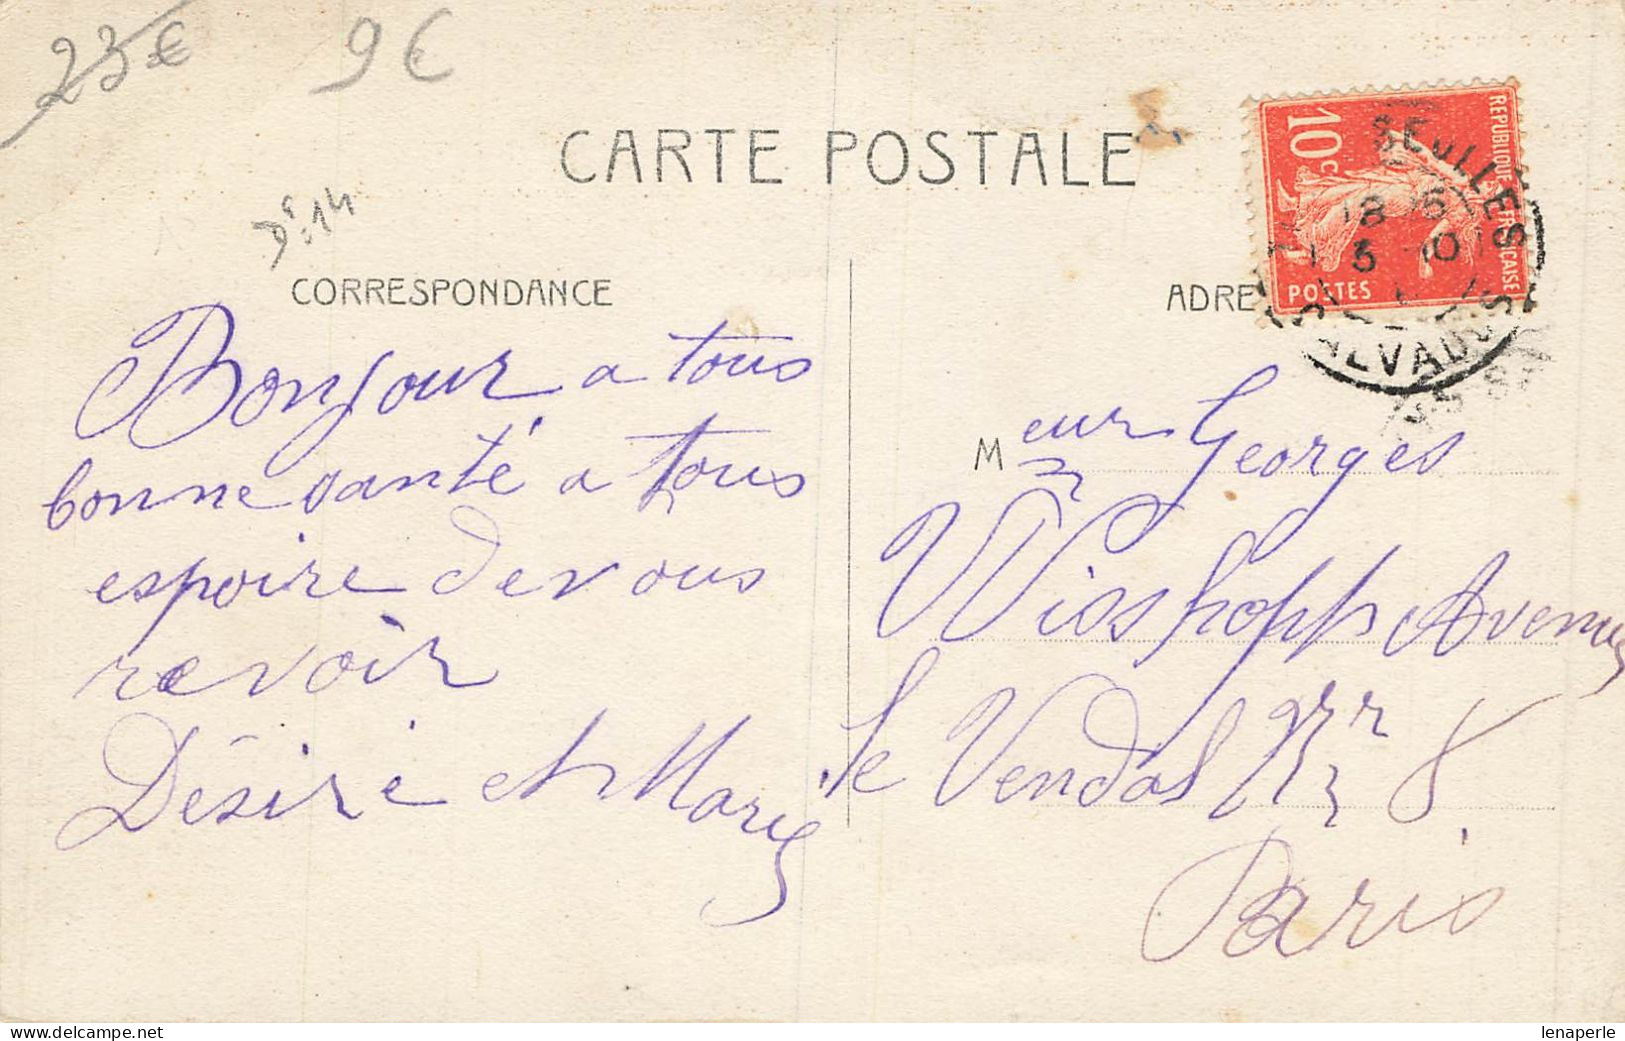 23€ 9€
CARTE POSTALE
Dt: 14
CORRESPONDANCE
Bonjour a tous
bonne santé a tous
espoire de vous
revoir
Désiré et Marie
ADRE
REPUBLIQUE FRANÇAISE
10c
POSTES
CALVADOS
Meur Georges
Wisshopp Avenue
le Vendal 8
Paris
© Delcampe.net
lenaperle